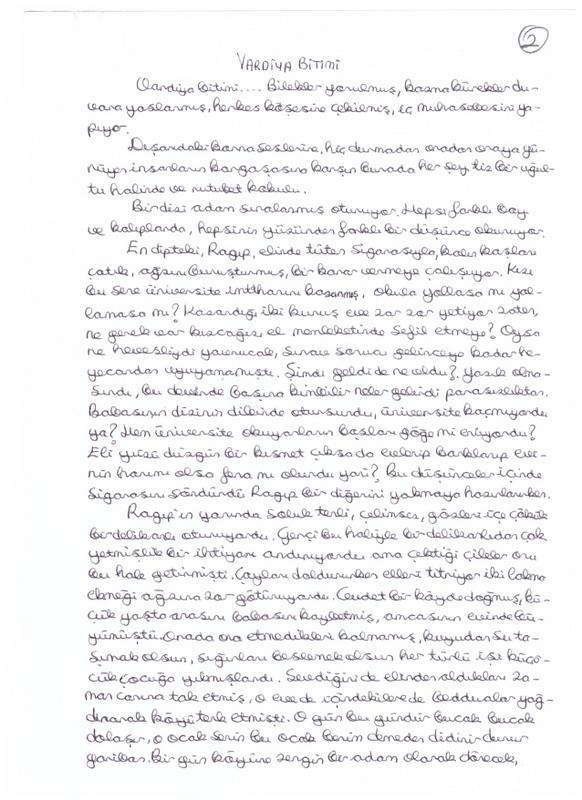 2
VARDİYA BİTİMİ
Vardiya Bitimi.... Bilekler yorulmuş, kazma kürekler du-
vara yaslanmış, herkes köşesine çekilmiş, iç muhasebesini ya-
pıyor.
Dışarıdaki korna seslerine, hiç durmadan oradan oraya yü-
rüyen insanların kargaşasına karşın burada her şey tiz bir uğul-
tu halinde ve rutubet kokulu.
Bir dizi adam sıralanmış oturuyor. Hepsi farklı boy
ve kalıplarda, hepsinin yüzünden farklı bir düşünce okunuyor.
En dipteki, Ragıp, elinde tüten sigarasıyla, kalın kaşları
çatık, ağzını buruşturmuş, bir karar vermeye çalışıyor. Kızı
bu sene üniversite imtihanını kazanmış, okula yollasa mı yol-
lamasa mı? Kazandığı iki kuruş eve zar zar yetiyor zaten,
ne gerek var kızcağızı el memleketinde sefil etmeye? Oysa
ne hevesliydi yavrucak, sınav sonucu gelinceye kadar he-
yecandan uyuyamamıştı. Şimdi geldi de ne oldu? Yazık olma-
sındı, bu devirde başına binbir neler gelirdi parasızlıktan.
Babasının dizinin dibinde otursundu, üniversite kaçmıyordu
ya? Hem üniversite okuyanların başları göğe mi eriyordu?
Eli yüzü düzgün bir kısmet çıksa da evlenip barklanıp evi-
nin hanımı olsa fena mı olurdu yani? Bu düşünceler içinde
sigarasını söndürdü Ragıp bir diğerini yakmaya hazırlanırken.
Ragıp'ın yanında soluk tenli, çelimsiz, gözleri içe çökük
bir delikanlı oturuyordu. Gerçi bu haliyle bir delikanlıdan çok
yetmişlik bir ihtiyarı andırıyordu ama çektiği çileler onu
bu hale getirmişti. Çayları doldururken elleri titriyor iki lokma
ekmeği ağzına zar götürüyordu. Cevdet bir köyde doğmuş, kü-
çük yaşta anasını babasını kaybetmiş, amcasının evinde bü-
yümüştü. Orada ona etmedikleri kalmamış, kuyudan su ta-
şımak olsun, sığırları beslemek olsun her türlü işi küçü-
cük çocuğa yıkmışlardı. Sevdiğini de elinden aldıkları za-
man canına tak etmiş, o eve de içindekilere de beddualar yağ-
dırarak köyü terk etmişti. O gün bu gündür bucak bucak
dolaşır, o ocak senin bu ocak benim demeden didinir durur
garibim. Bir gün köyüne zengin bir adam olarak dönecek,